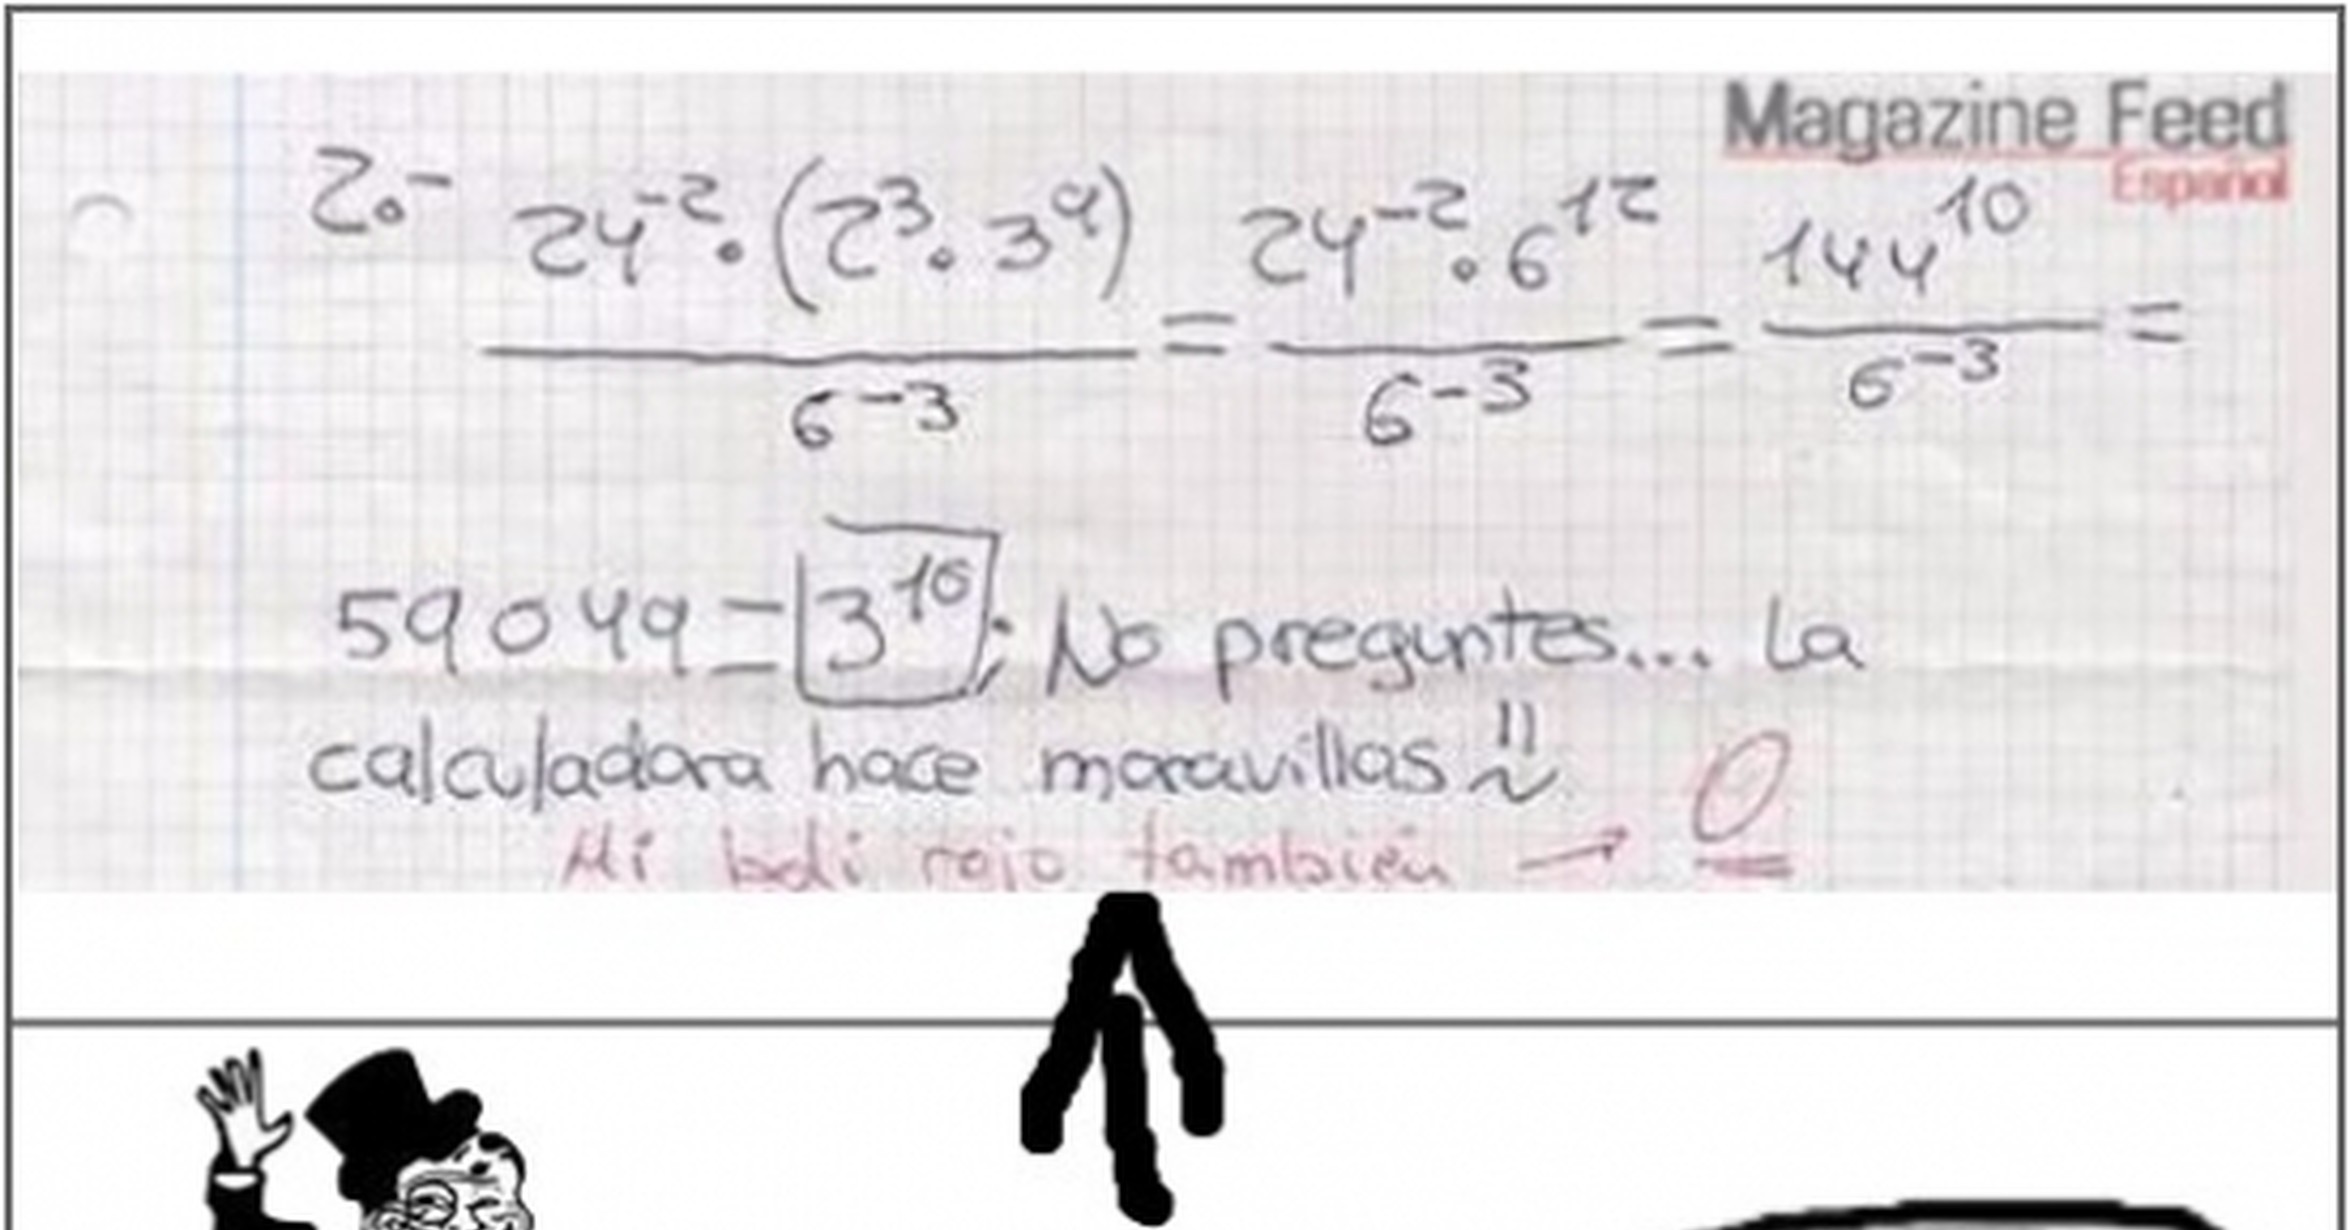 Magazine Feed
Español
2.- 24^-2 · (2^3 · 3^9) / 6^-3 = 24^-2 · 6^12 / 6^-3 = 144^10 / 6^-3 =
59049 = 3^10; No preguntes... La
calculadora hace maravillas
Mi boli rojo también → 0